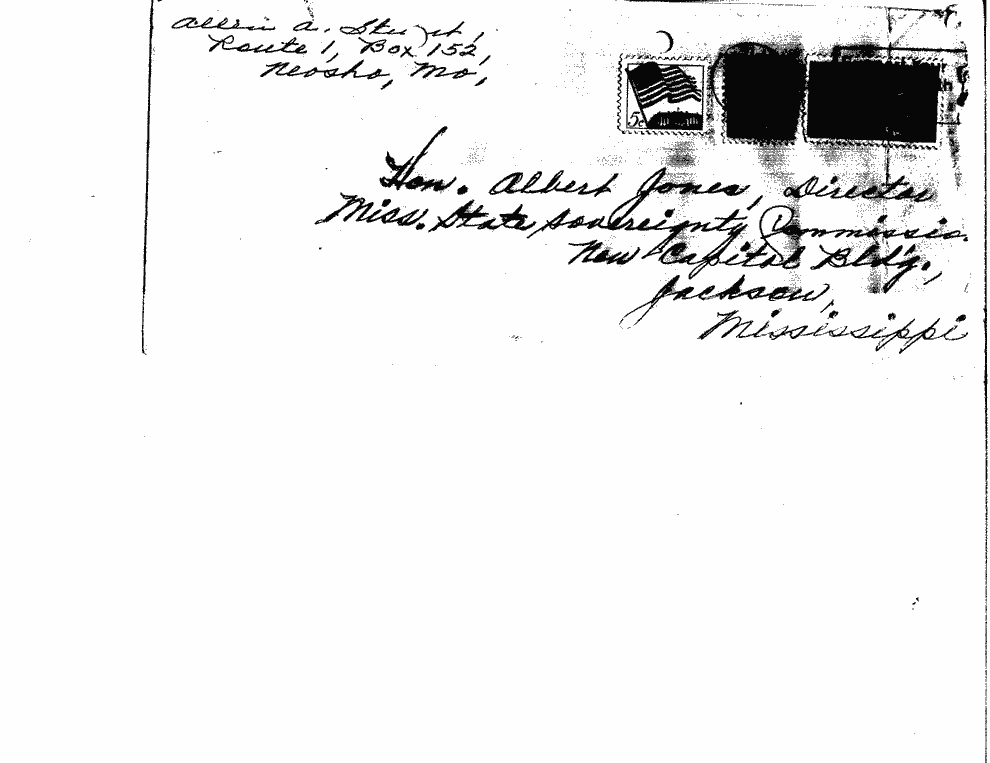 A.
Route 1, Box 152,
Neosho, Mo,
5c
Hon. Albert Jones, Director
Miss. State Sovereignty Commissio
New Capitol Bldg.,
Jackson,
Mississippi